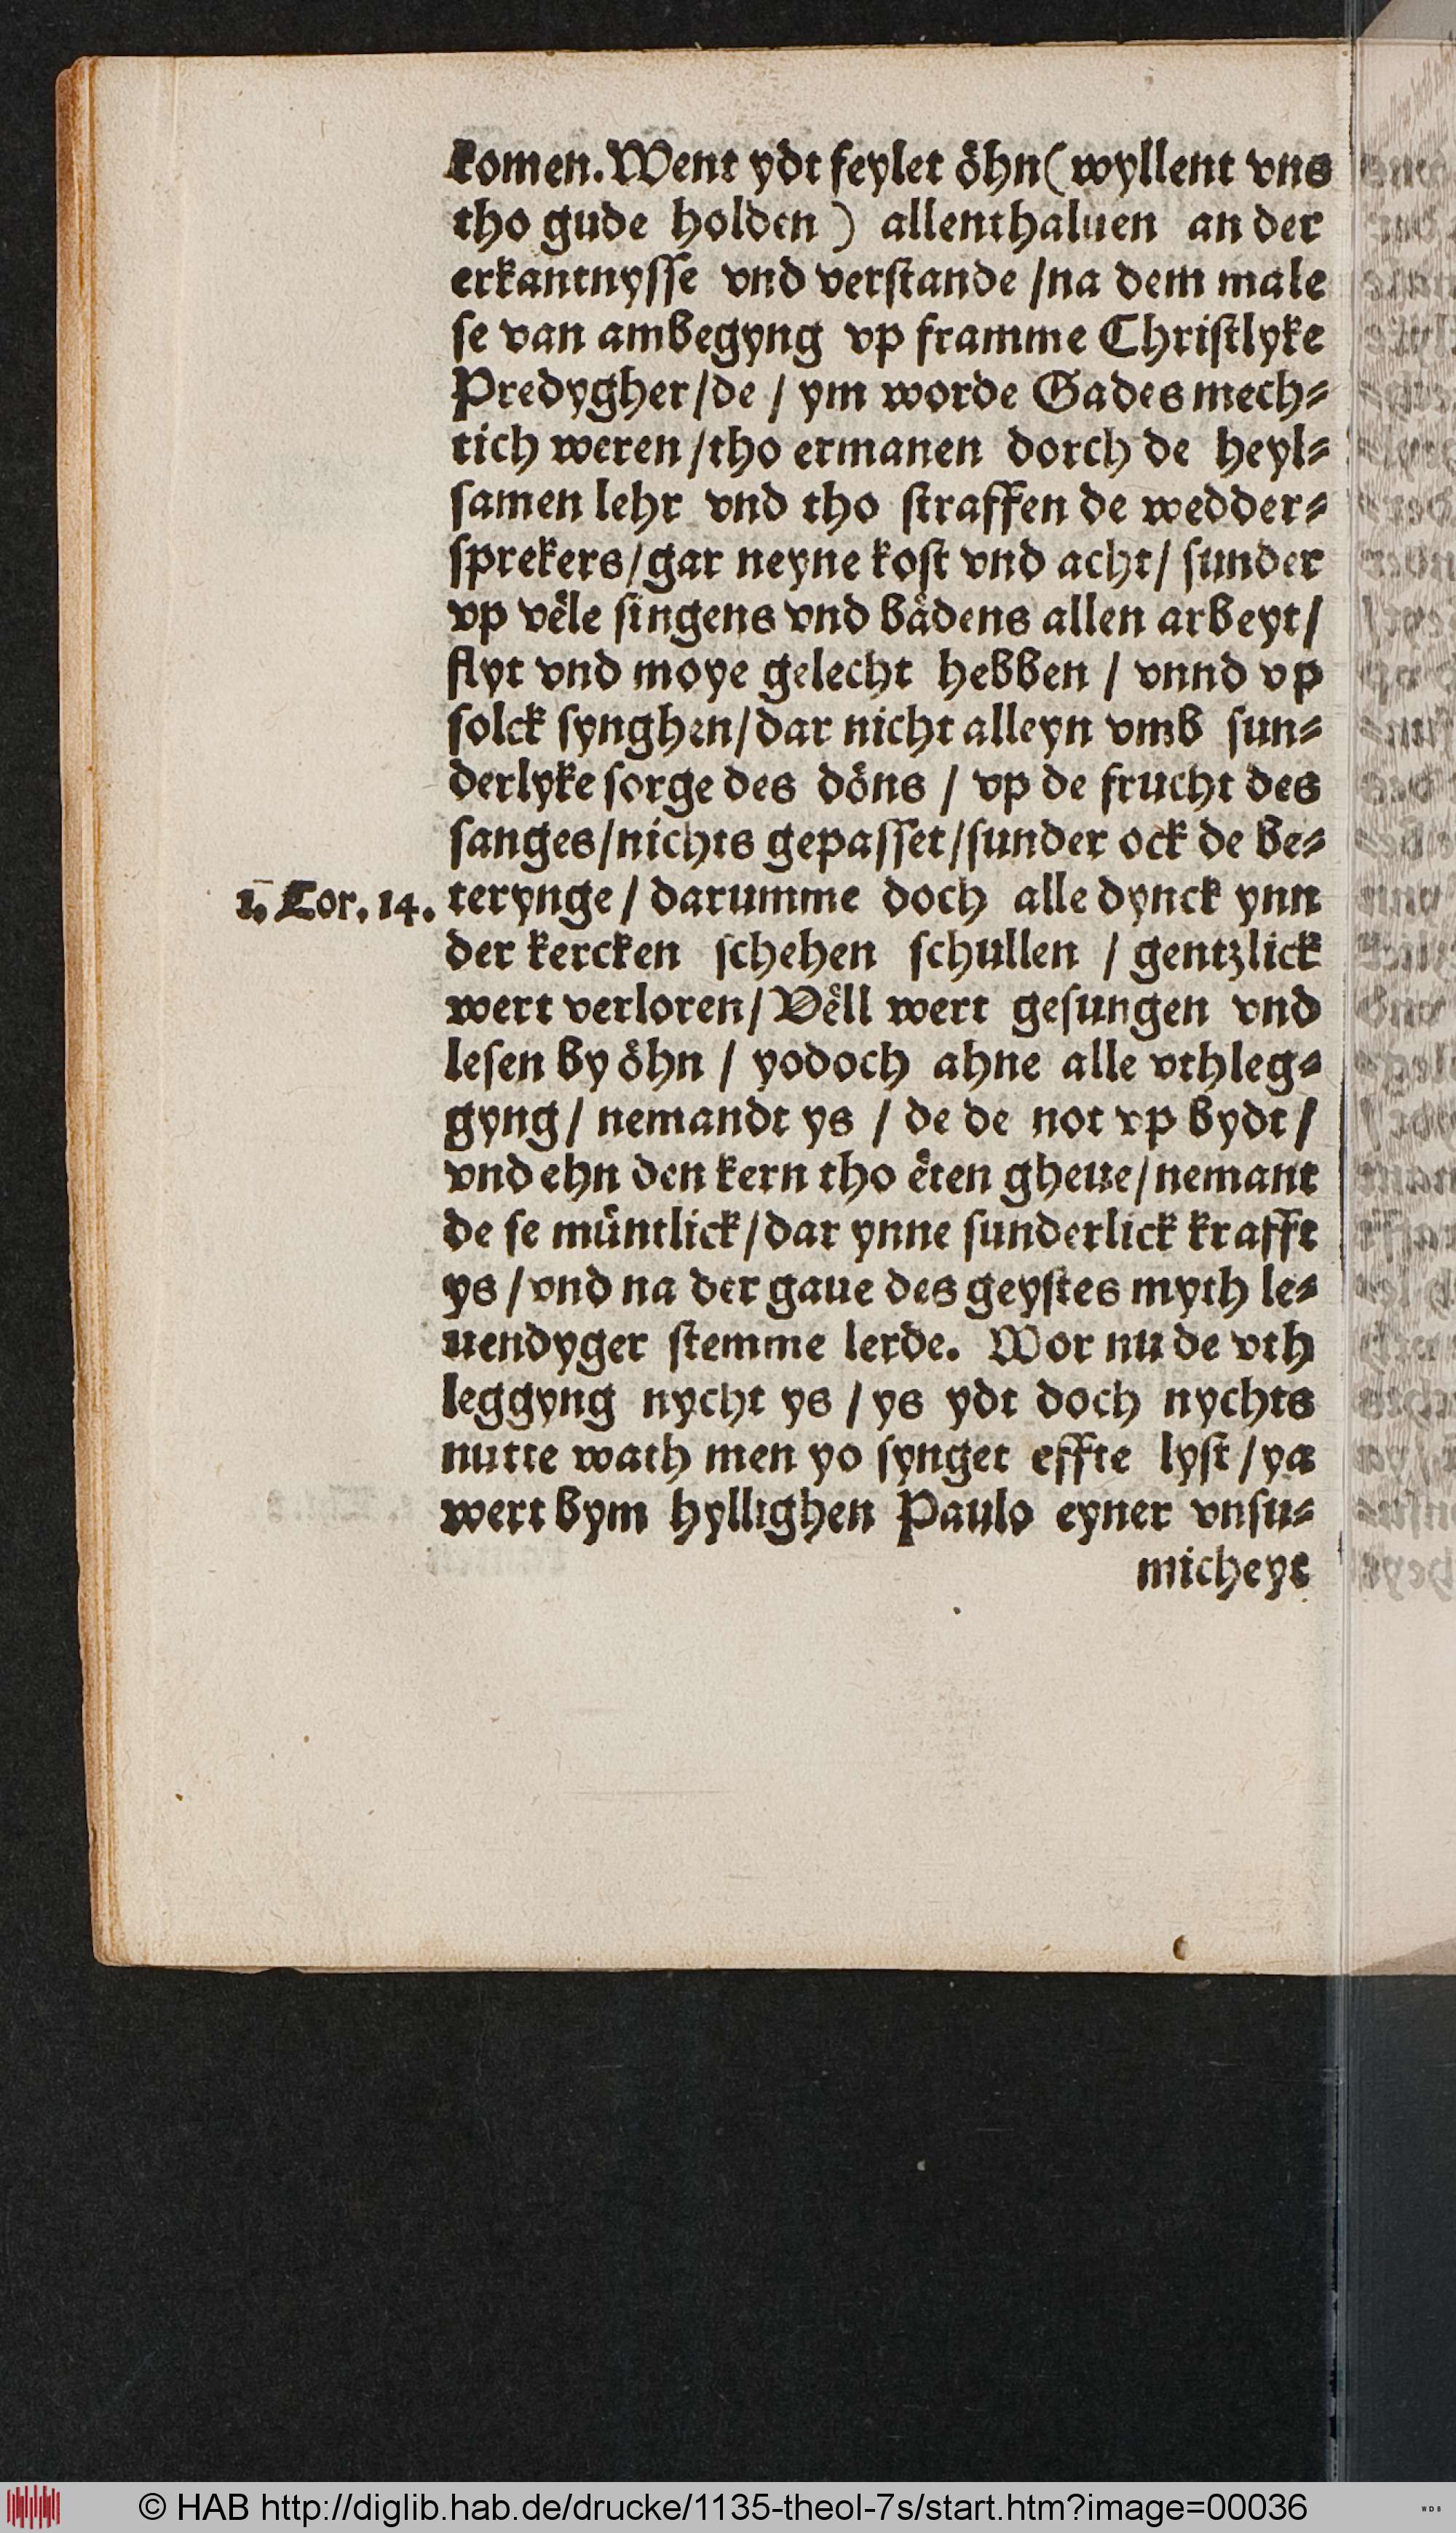 komen. Went ydt feylet oͤhn (wyllent vns
tho gude holden) allenthaluen an der
erkantnysse vnd verstande / na dem male
se van ambegyng vp framme Christlyke
Predygher / de / ym worde Gades mech⸗
tich weren / tho ermanen dorch de heyl⸗
samen lehr vnd tho straffen de wedder⸗
sprekers / gar neyne kost vnd acht / sunder
vp veͤle singens vnd baͤdens allen arbeyt /
flyt vnd moye gelecht hebben / vnnd vp
solck synghen / dar nicht alleyn vmb sun⸗
derlyke sorge des doͤns / vp de frucht des
sanges / nichts gepasset / sunder ock de be⸗
1. Cor. 14. terynge / darumme doch alle dynck ynn
der kercken schehen schullen / gentzlick
wert verloren / Veͤll wert gesungen vnd
lesen by oͤhn / yodoch ahne alle vthleg⸗
gyng / nemandt ys / de de not vp bydt /
vnd ehn den kern tho eͤten gheue / nemant
de se muͤntlick / dar ynne sunderlick krafft
ys / vnd na der gaue des geystes myth le⸗
uendyger stemme lerde. Wor nu de vth
leggyng nycht ys / ys ydt doch nychts
nutte wath men yo synget effte lyst / ya
wert bym hyllighen Paulo eyner vnsu⸗
micheyt
© HAB http://diglib.hab.de/drucke/1135-theol-7s/start.htm?image=00036